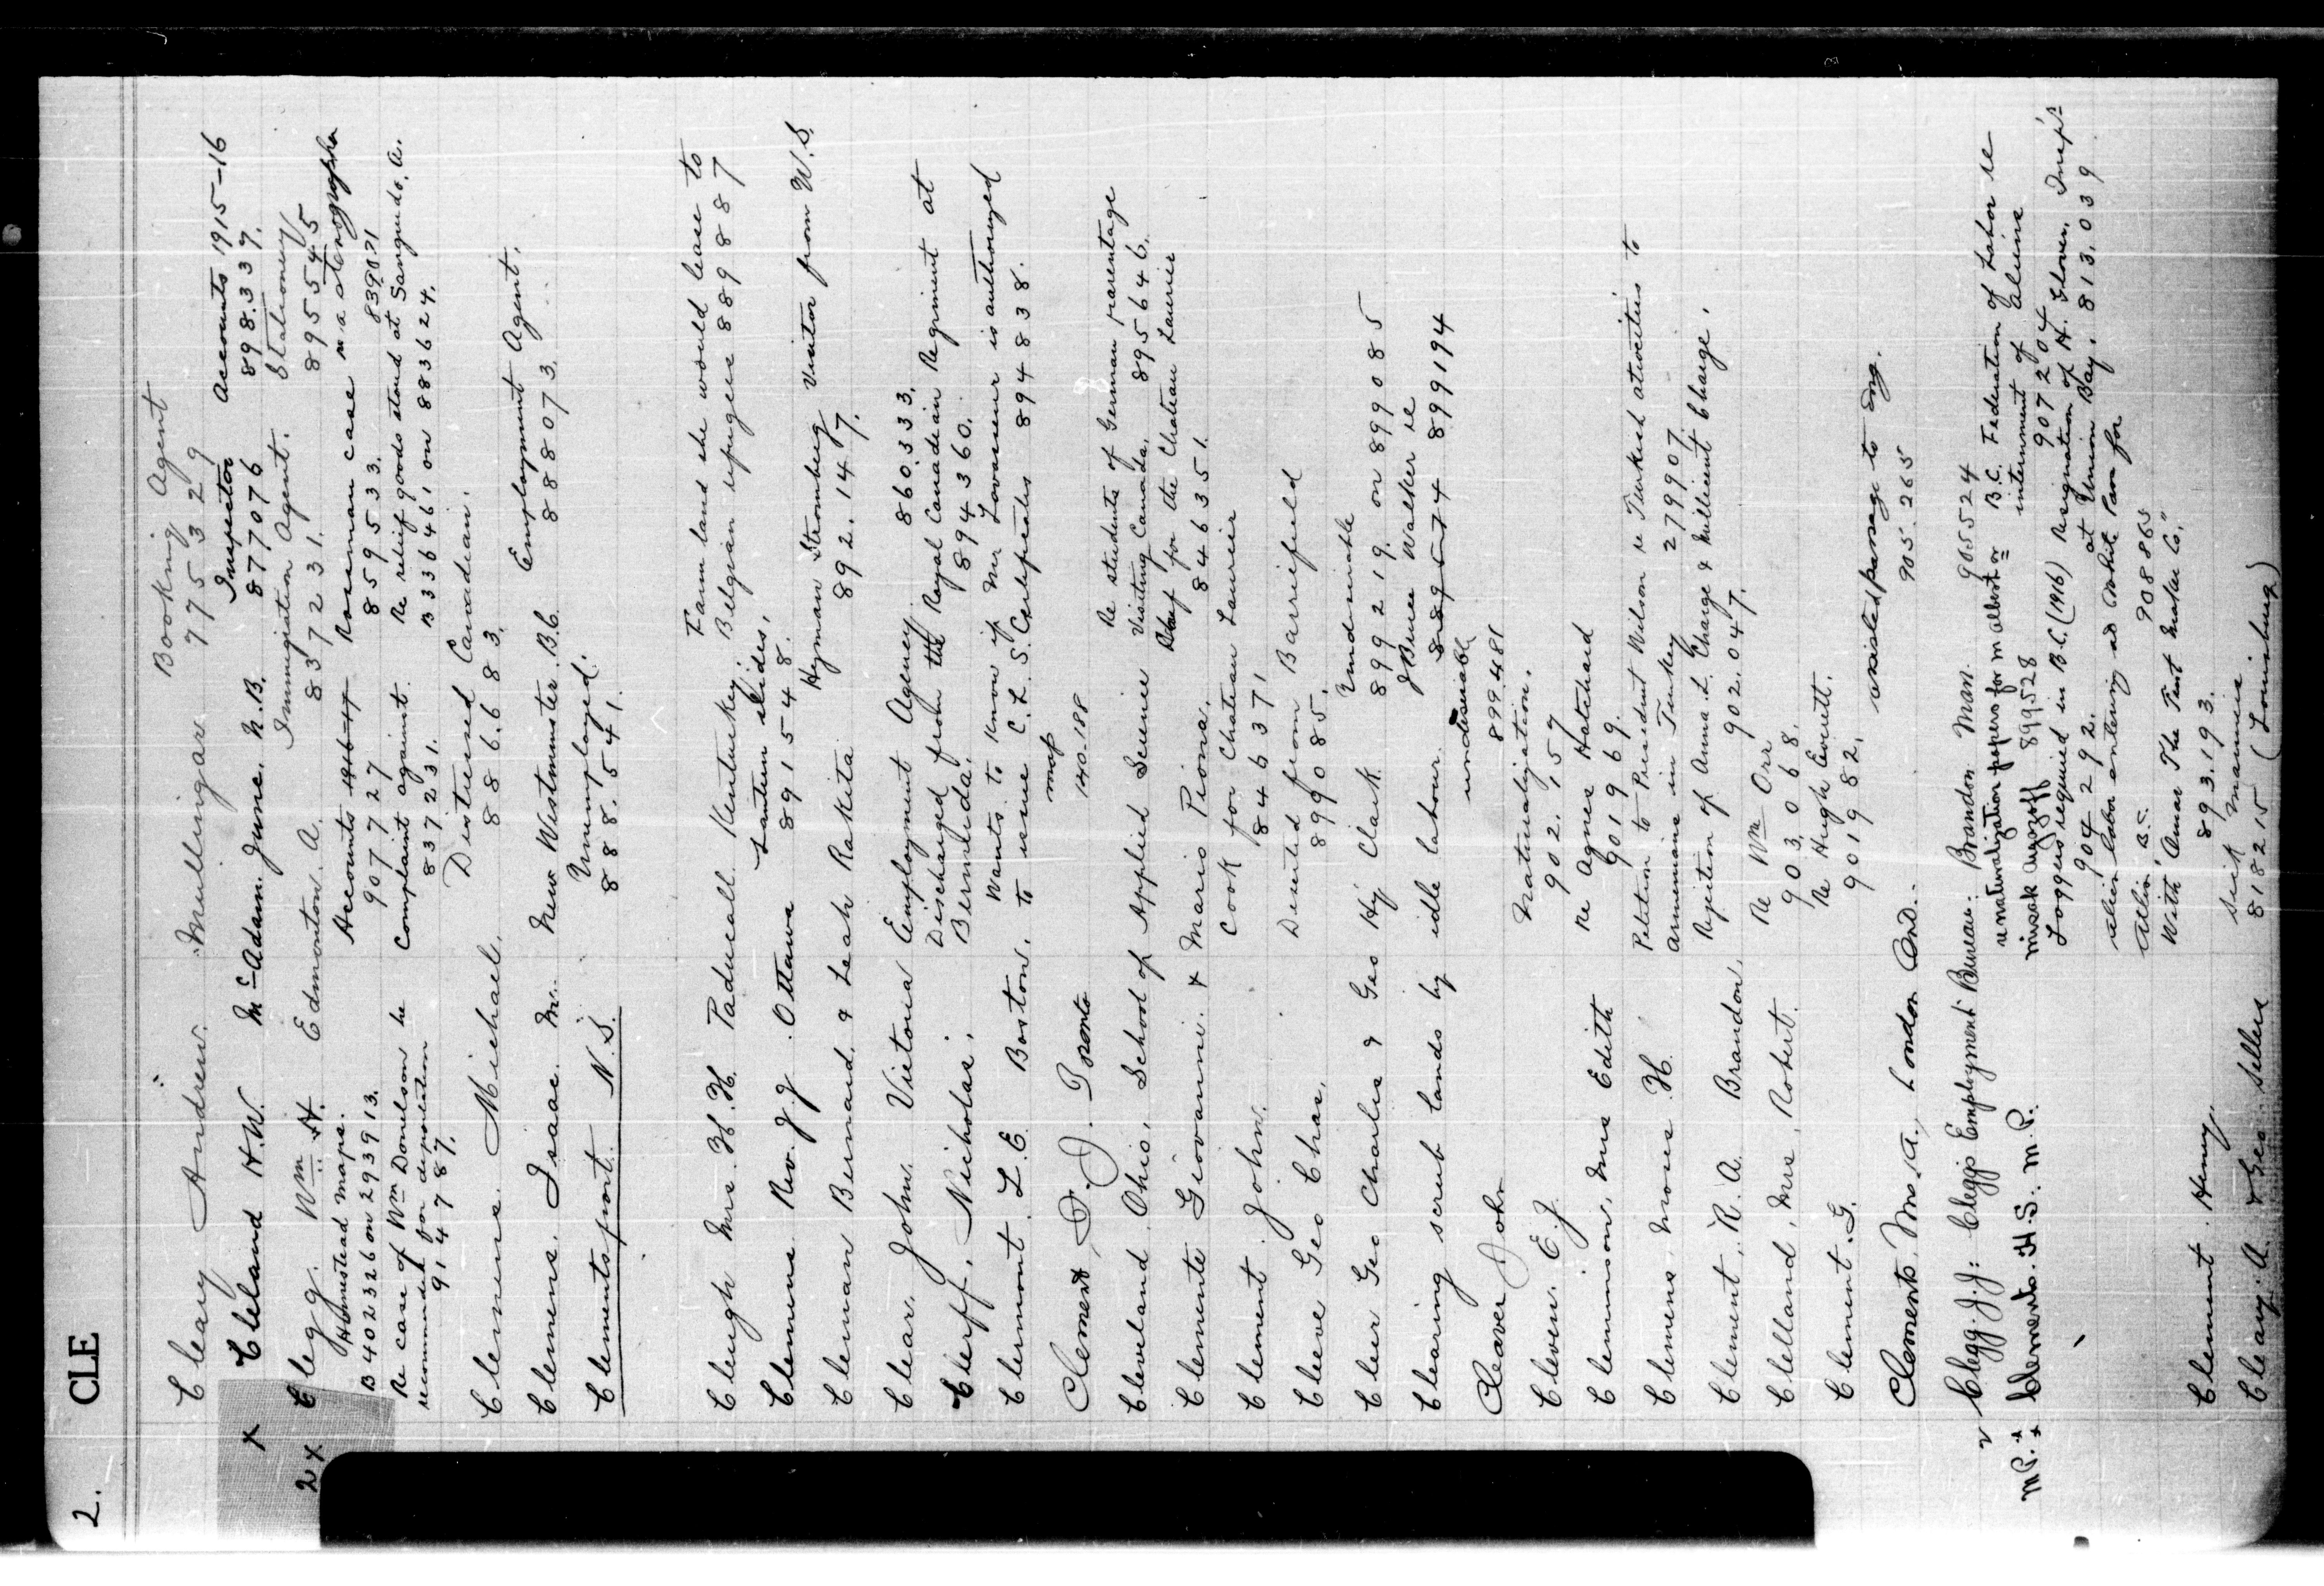 2. CLE
Cleary Andrew. Mullingar Booking Agent
775329
x Cleland H.W. McAdam. Junc. N.B. Inspector Accounts 1915-16
877076 898.339.
2x Clegg. Wm H. Edmonton. A. Immigration Agent. Stationery
837231. 895545
Homestead maps. Accounts 1916-17 Roseman case re a stenographer
B402326 on 293913. 907727 859533. 839071
Re case of Wm Donelson he Complaint against. Re relief goods stored at Sangudo. A.
recommended for deportation 837231. B336461 on 883624.
914787.
Clemens. Michael. Distressed Canadian.
886.683.
Clemens. Isaac. M. New Westminster. B.C. Employment Agent.
888073.
Clementsport. N.S. Unemployed.
888.541.
Clough Mrs. H. H. Paducall. Kentuskey. Farm land she would lease to
Belgian refugees 889887
Clemens. Rev. J. J. Ottawa Lantern slides.
891548.
Cleman Bernard. & Leah Rakita Hyman Stromberg Visitor from U.S.
892.147.
Clear. John. Victoria Employment Agency 860333.
Clerff. Nicholas. Discharged from the Royal Canadian Regiment at
Bermuda. 894360.
Clermont. L. E. Boston. Wants to know if Mr Lovasseur is authorized
to issue C. L. S. Certificates 894838.
Clement, T. Toronto map
140-188
Cleveland, Ohio, School of Applied Science Re students of German parentage
Visiting Canada. 895646.
Clemente Giovanni. & Mario Piona. Chef for the Chateau Laurier
846351.
Clement. John. Cook for Chateau Laurier
846371
Cleeve Geo Chas. Deserted from Barriefield
899085.
Cleur Geo Charlie & Geo Hy Clark Undesirable
899219. on 899085
Clearing scrub lands by idle labour. J Bruce Walker re
899194
Cleaver John undesirable
899.481
Cleven. E. J. Naturalization.
902.157
Clemmison, Mrs Edith Re Agnes Hatchard
901969.
Clemens, Morris H. Petition to President Wilson re Turkish atrocities to
Armenians in Turkey 279907
Clement, R. A. Brandon, Rejection of Anna. L. Charge & Millicent Charge.
902.047.
Clelland, Mrs, Robert. Re Wm Orr
903.068.
Clement. G. Re Hugh Everett.
901982.
Clements. Mrs. A., London Ont. assisted passage to Eng.
905.265
v Clegg. J. J: Cleggs Employment Bureau. Brandon Man. 905524
MP. Clements. H. S. M. P. renaturalization papers for m albert or B.C. Federation of Labor re
899.528 internment of aliens
907204
Loggers required in B.C. (1916) Resignation of H. Insp's
904292. at Union Bay. 813.039
alien labor entering via White Pass for
Atlin, B.C. 908865
Clement. Henry. With Amas The Tent Co,"
893.193.
Cleary. A. & Geo. Sellers Sick
818215 (Louisburg)